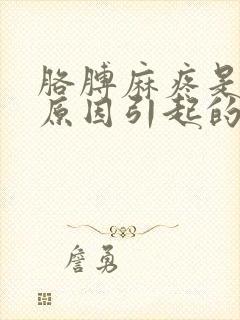 胳膊麻疼是
原因引起的
詹勇